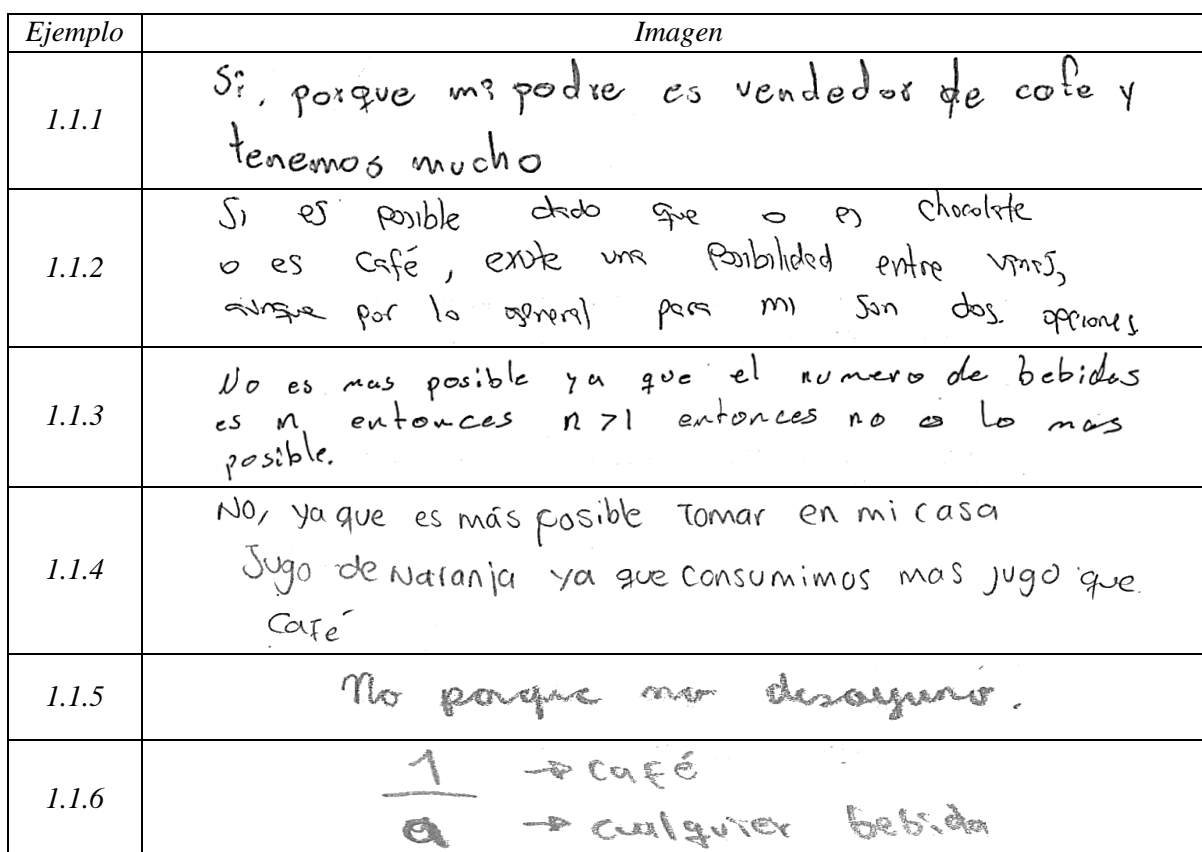 Ejemplo Imagen
1.1.1
Si, porque mi padre es vendedor de cafe y
tenemos mucho
1.1.2
Si es posible dado que o es chocolate
o es café, existe una posibilidad entre varias,
aunque por lo general para mi son dos opciones
1.1.3
No es mas posible ya que el numero de bebidas
es n entonces n >1 entonces no es lo mas
posible.
1.1.4
NO, ya que es más posible tomar en mi casa
Jugo de Naranja ya que consumimos mas jugo que
café
1.1.5
No porque no desayuno.
1.1.6
1 → café
a → cualquier bebida